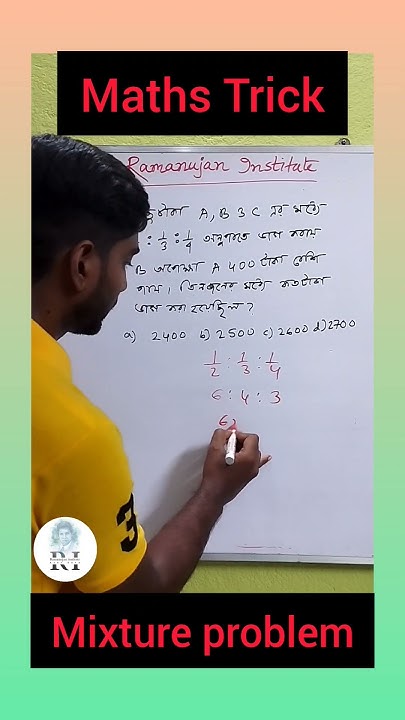 Maths Trick
Ramanujan Institute
টাকা A, B ও C এর মধ্যে
: 1/3 : 1/4 অনুপাতে ভাগ করায়
B অপেক্ষা A 400 টাকা বেশি
পায়। তিনজনের মধ্যে কত টাকা
ভাগ করা হয়েছিল?
a) 2400 b) 2500 c) 2600 d) 2700
1/2 : 1/3 : 1/4
6 : 4 : 3
6
RI
Mixture problem